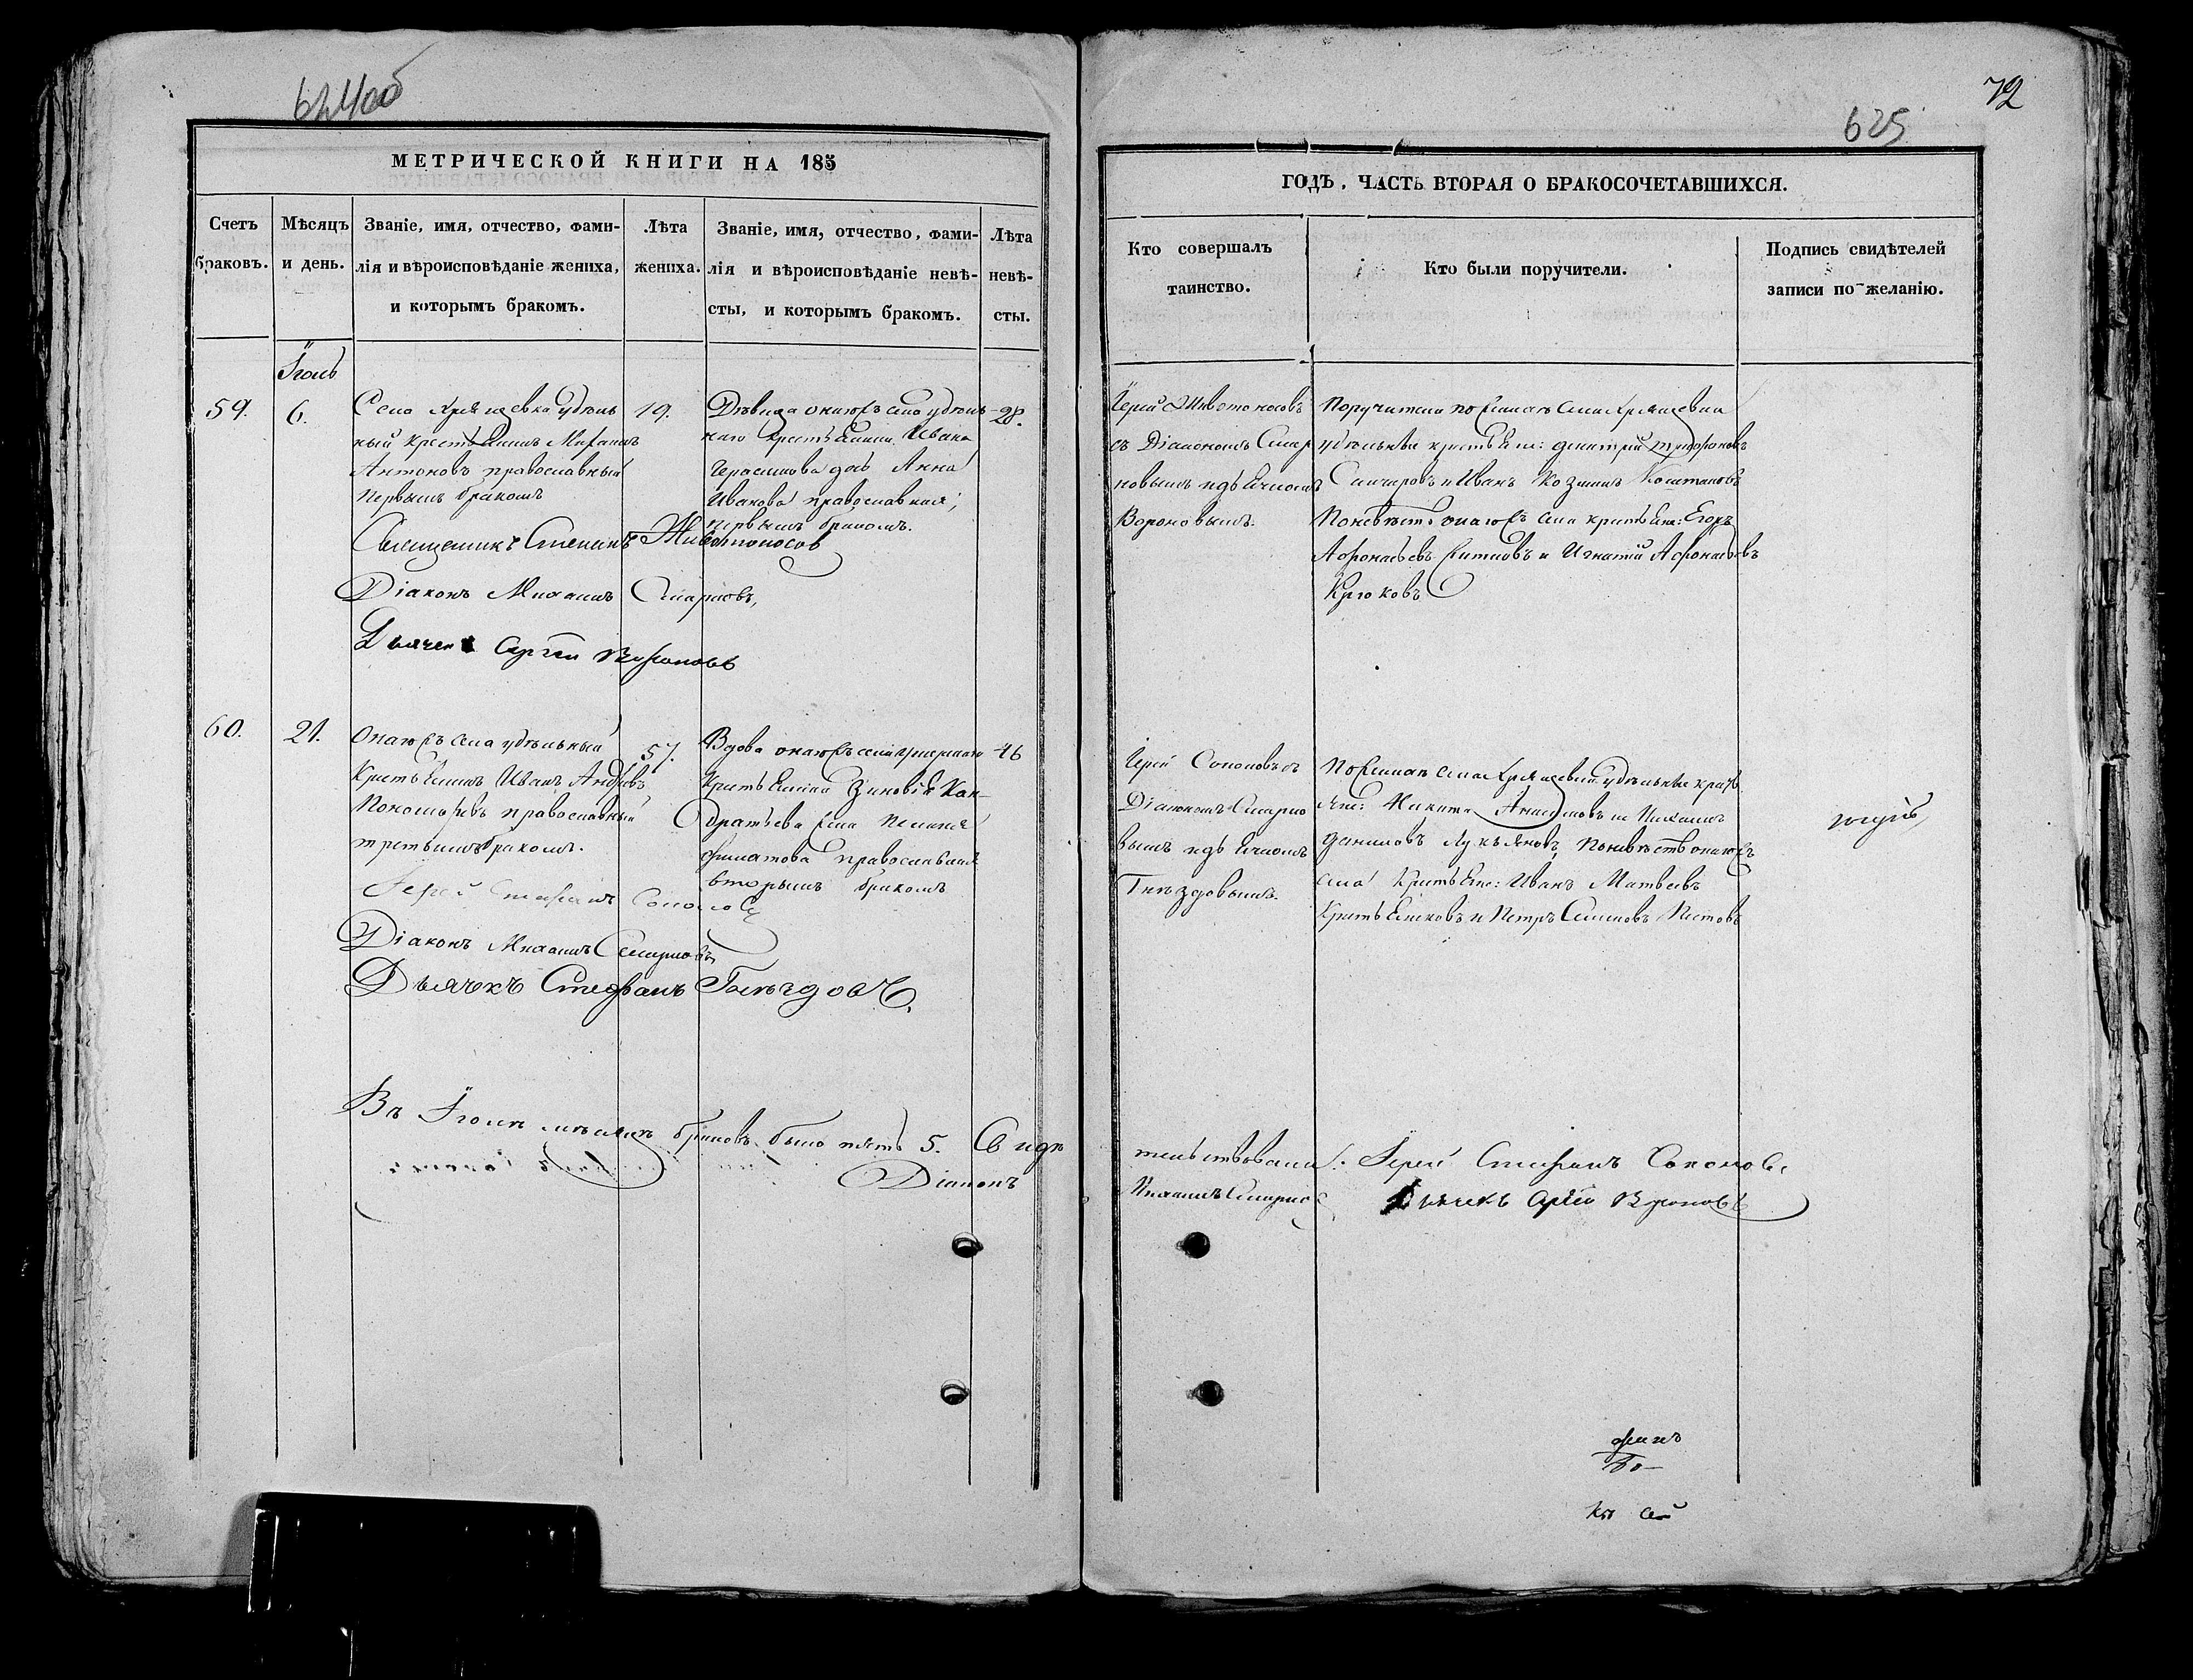 624об
МЕТРИЧЕСКОЙ КНИГИ НА 185
Счетъ браковъ.
Мѣсяцъ и день.
Званіе, имя, отчество, фами-
лія и вѣроисповѣданіе жениха,
и которымъ бракомъ.
Лѣта
жениха.
Званіе, имя, отчество, фами-
лія и вѣроисповѣданіе невѣ-
сты, и которымъ бракомъ.
Лѣта
невѣ-
сты.
Іюль
59.
6.
Села Хрящевка удѣль
ный крестьянинъ Михаилъ
Антоновъ православный
первымъ бракомъ
19.
Дѣвица онаго села удѣль
наго крестьянина Ивана
Герасимова дочь Анна
Иванова православная,
первымъ бракомъ.
20.
Священникъ Стефанъ Живоносов
Діаконъ Михаилъ Смирновъ,
Дьячекъ Сергей Вороновъ
60.
21.
Онаго села удѣльный
крестьянинъ Иванъ Андреевъ
православный
третьимъ бракомъ.
57.
Вдова онаго села умершаго
крестьянина Зиновія Кон-
дратьева
православная
вторымъ бракомъ
46
Іерей Стефанъ Соколовъ
Діаконъ Михаилъ Смирновъ
Дьячекъ Стефанъ Гнѣздовъ.
Въ Іюлѣ месяцѣ браковъ было пять 5. Свидѣ
Діаконъ
72
625
ГОДЪ, ЧАСТЬ ВТОРАЯ О БРАКОСОЧЕТАВШИХСЯ.
Кто совершалъ
таинство.
Кто были поручители.
Подпись свидѣтелей
записи по желанію.
Іерей Живоносовъ
съ Діакономъ Смир
новымъ и дьячкомъ
Вороновымъ.
Поручители по женихѣ села Хрящевки
удѣльные крестьяне: Дмитрій
и Иванъ Козминъ
По невѣстѣ онаго села крестьяне: Егоръ
Афонасьевъ и Игнатій Афонасьевъ
Крюковъ
Іерей Соколовъ съ
Діакономъ Смирно
вымъ и дьячкомъ
Гнѣздовымъ.
По женихѣ села Хрящевки удѣльные кресть
яне: Никита и Михаилъ
Даниловъ Лукьяновъ, по невѣстѣ онаго
села крестьяне: Иванъ Матвеевъ
и Петръ
тельствовали: Іерей Стефанъ Соколовъ
Михаилъ Смирновъ Дьячекъ Сергей Вороновъ